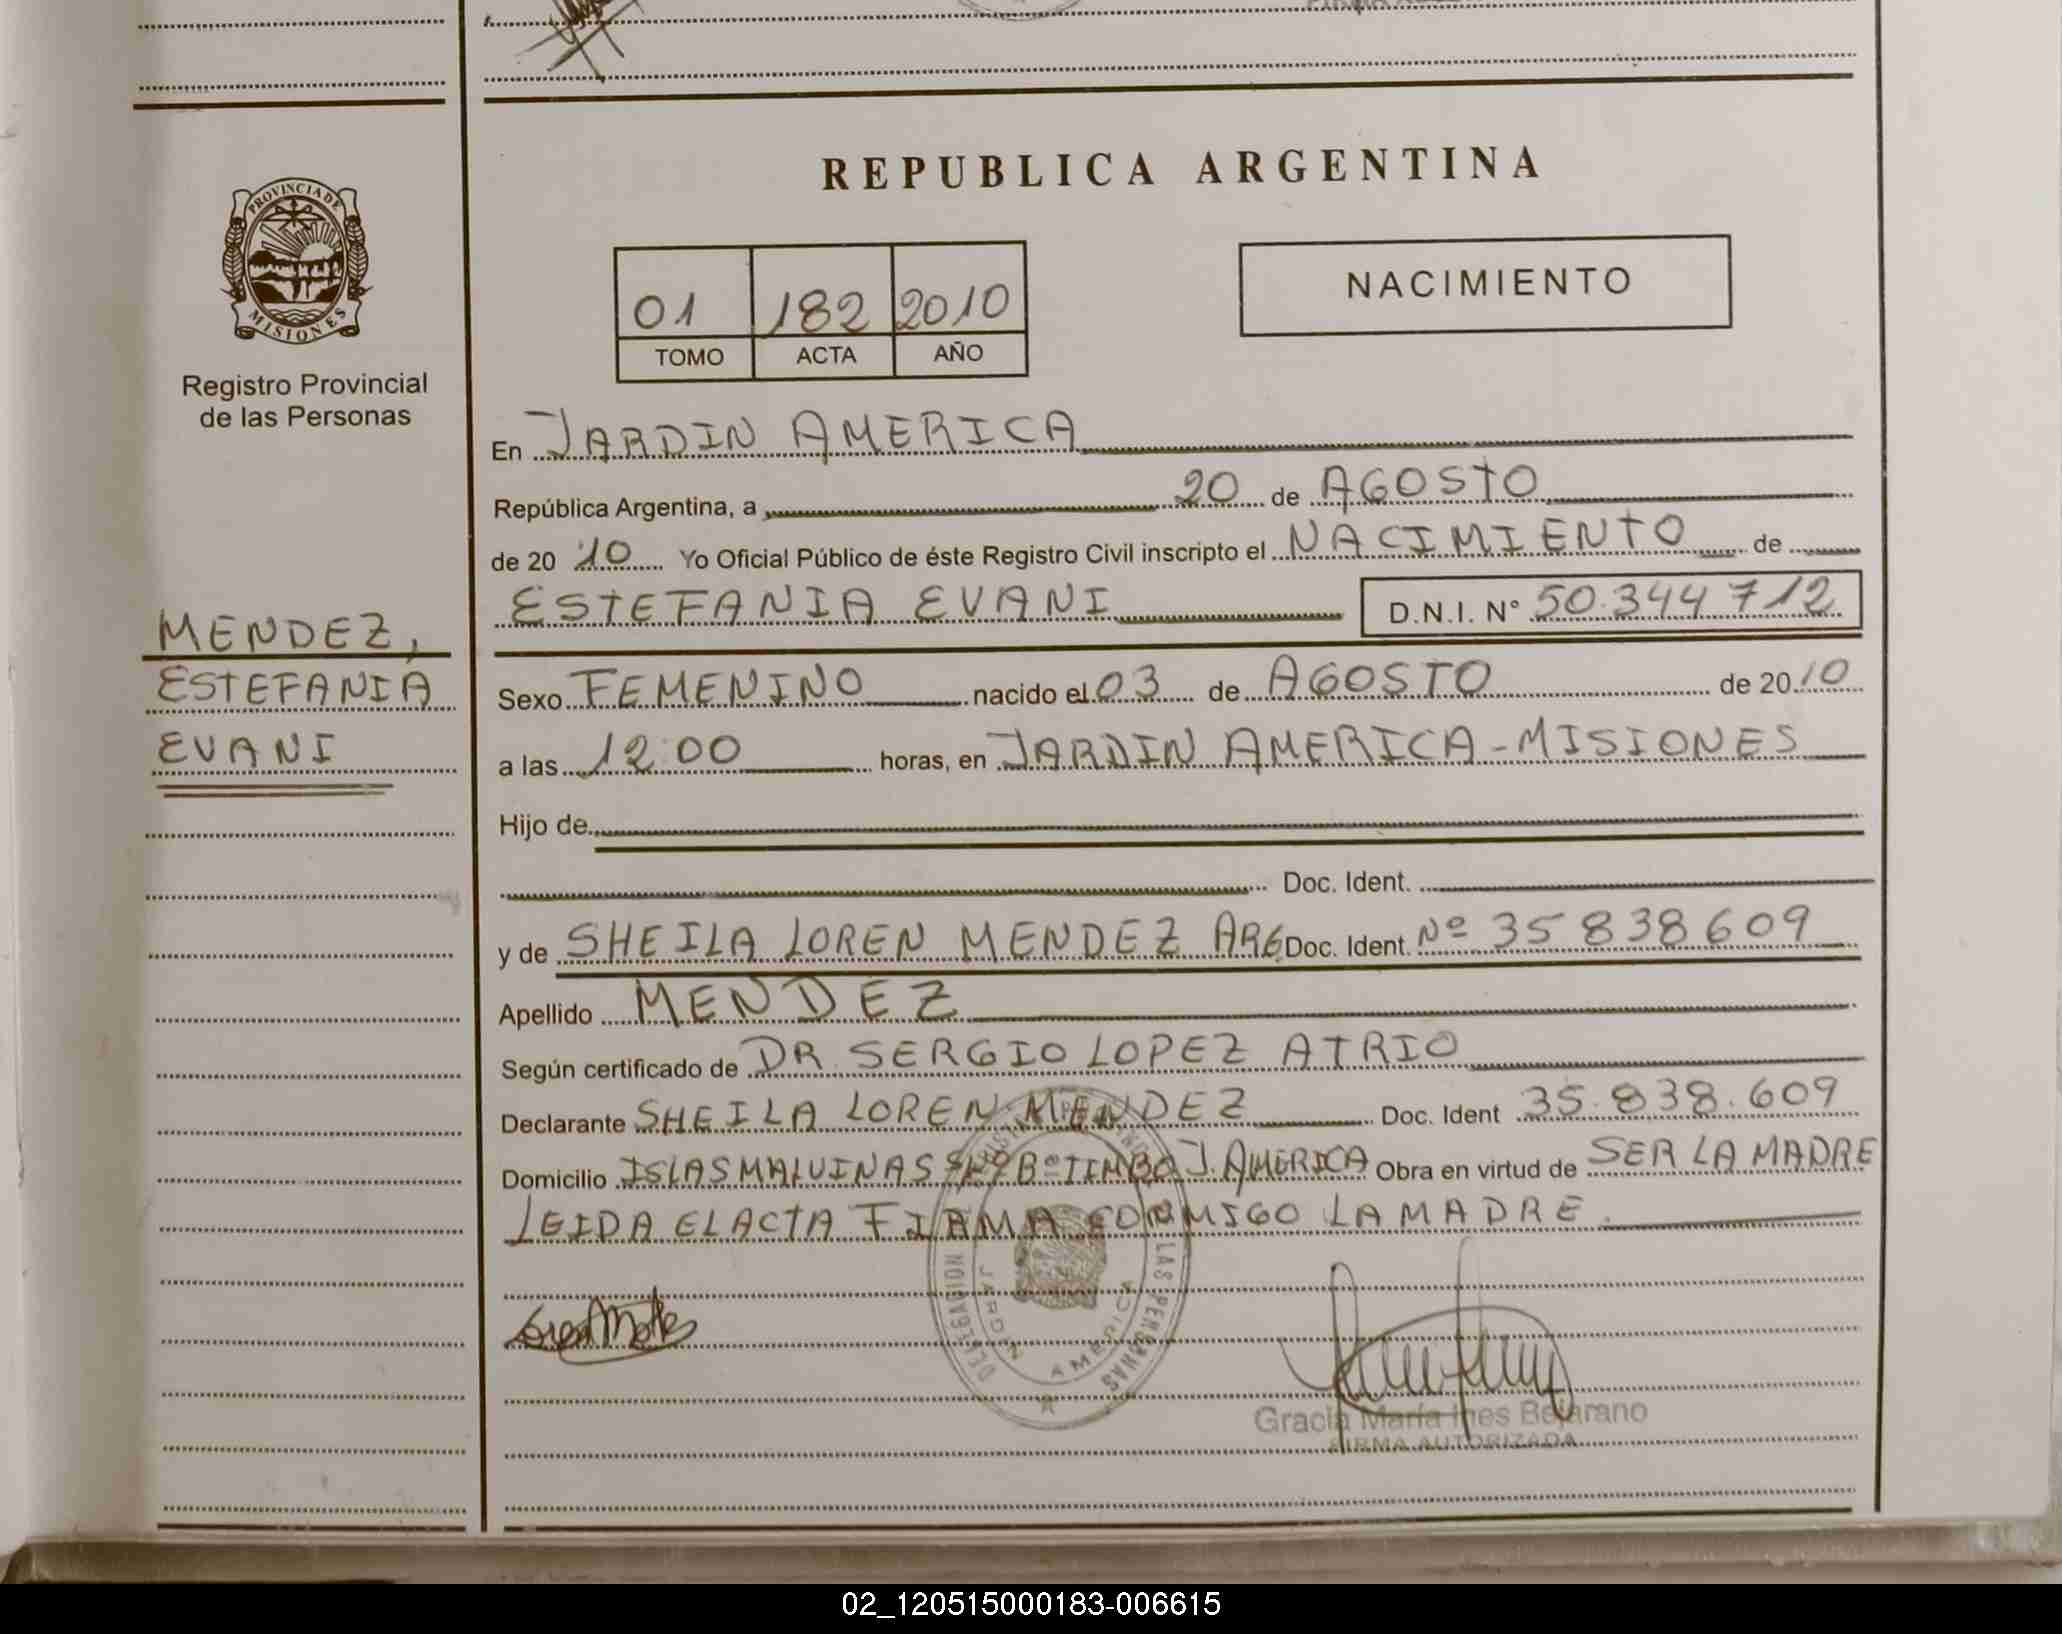 REPUBLICA ARGENTINA
PROVINCIA DE
MISIONES
Registro Provincial
de las Personas
01 182 2010
TOMO ACTA AÑO
NACIMIENTO
En JARDIN AMERICA
República Argentina, a 20 de AGOSTO
de 20 10 Yo Oficial Público de éste Registro Civil inscripto el NACIMIENTO de
ESTEFANIA EVANI D.N.I. N° 50.344 712
MENDEZ,
ESTEFANIA
EVANI
Sexo FEMENINO nacido el 03 de AGOSTO de 2010
a las 12:00 horas, en JARDIN AMERICA-MISIONES
Hijo de
Doc. Ident.
y de SHEILA LOREN MENDEZ ARG Doc. Ident. Nº 35 838 609
Apellido MENDEZ
Según certificado de DR. SERGIO LOPEZ ATRIO
Declarante SHEILA LOREN MENDEZ Doc. Ident 35.838.609
Domicilio ISLAS MALVINAS S/Nº Bº TIMBO J. AMERICA Obra en virtud de SER LA MADRE
LEIDA EL ACTA FIRMA CONMIGO LA MADRE.
DELEGACION LAS PERSONAS
JARDIN AMERICA
Gracia María Ines Bejarano
FIRMA AUTORIZADA
02_120515000183-006615